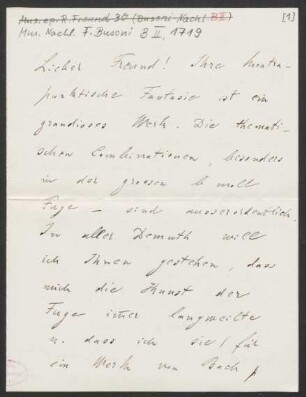 Mus. ep. R. Freund 30 (Busoni-Nachl. B II) [1]
Mus. Nachl. F. Busoni B II, 1719
Lieber Freund! Ihre kontra-
punktische Fantasie ist ein
grandioses Werk. Die themati-
schen Combinationen, besonders
in der grossen b moll
Fuge – sind ausserordentlich.
In aller Demuth will
ich Ihnen gestehen, dass
mich die Kunst der
Fuge immer langweilte
u. dass ich sie für
ein Werk von Bach